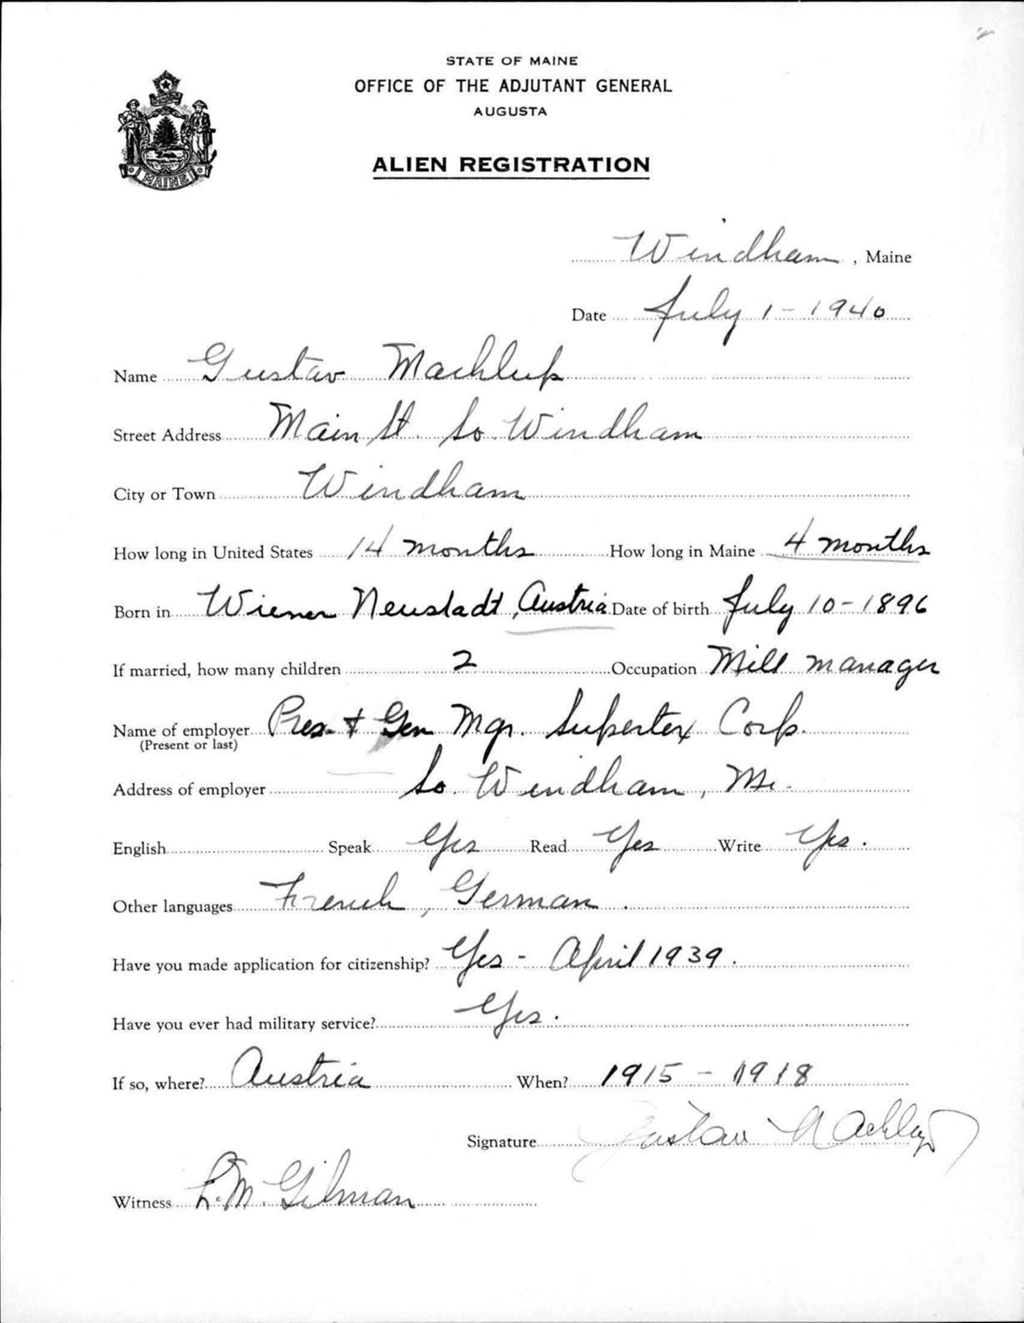 STATE OF MAINE
OFFICE OF THE ADJUTANT GENERAL
AUGUSTA
ALIEN REGISTRATION
MAINE
Windham, Maine
Date July 1-1940
Name Gustav Machlup
Street Address Main St. So. Windham
City or Town Windham
How long in United States 14 months How long in Maine 4 months
Born in Wiener Neustadt, Austria Date of birth July 10-1896
If married, how many children 2 Occupation Mill manager
Name of employer Pres. + Gen Mgr. Supertex Corp.
(Present or last)
Address of employer So. Windham, Me.
English Speak Yes Read Yes Write Yes.
Other languages French, German.
Have you made application for citizenship? Yes - April 1939.
Have you ever had military service? Yes.
If so, where? Austria When? 1915 - 1918
Signature Gustav Machlup
Witness L.M. Gilman